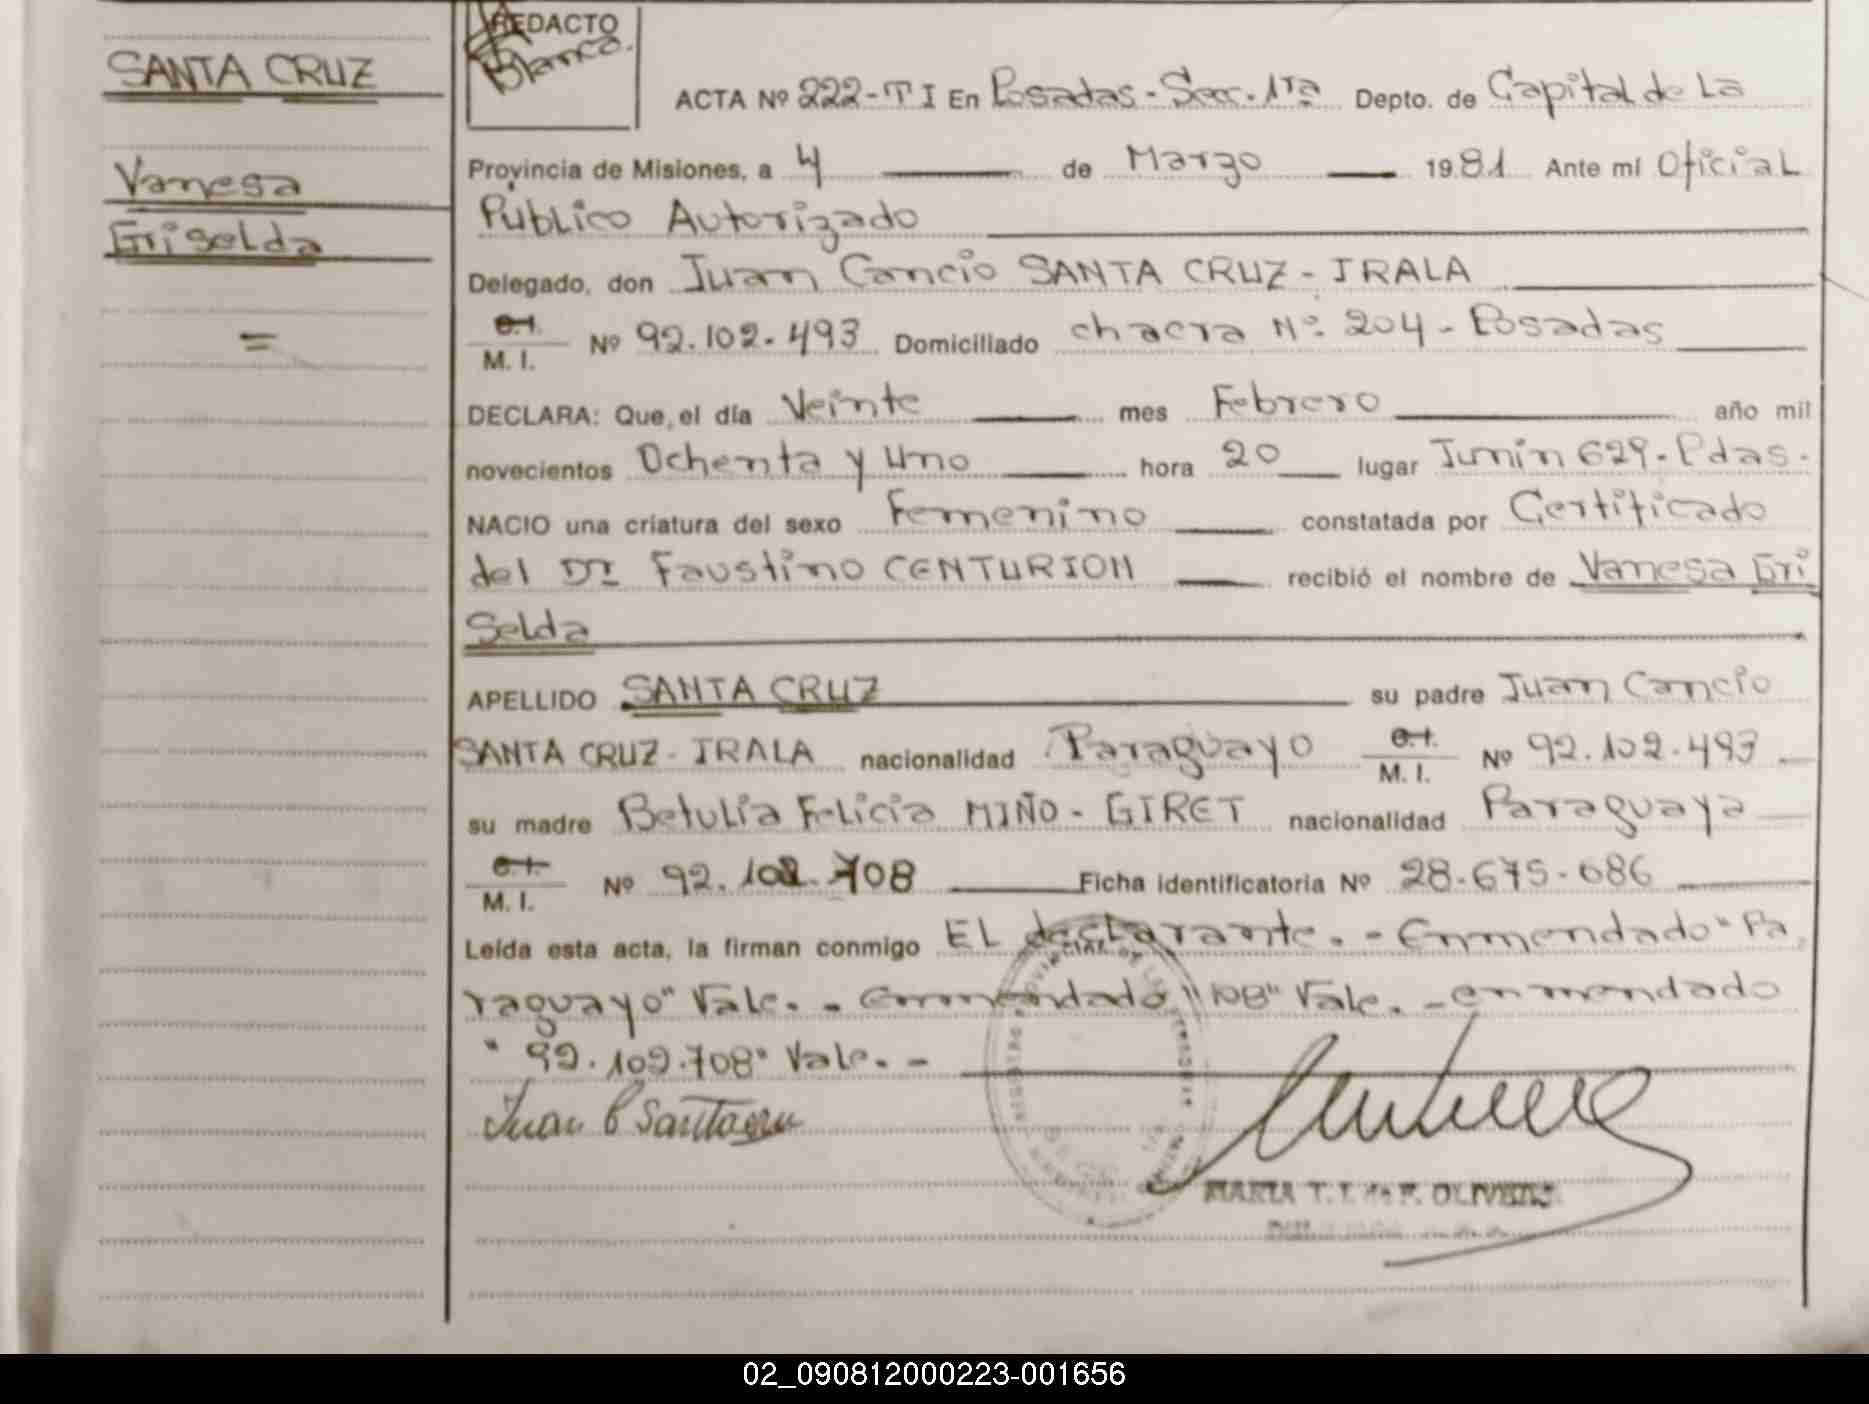 SANTA CRUZ
Vanesa
Griselda
=
REDACTO
Blanca.
ACTA Nº 222-T I En Posadas-Secc. 1ra Depto. de Capital de La
Provincia de Misiones, a 4 de Marzo 1981 Ante mí Oficial
Público Autorizado
Delegado, don Juan Cancio SANTA CRUZ - IRALA
C.I.
M. I. Nº 92.102.493 Domiciliado chacra Nº 204 - Posadas
DECLARA: Que, el día Veinte mes Febrero año mil
novecientos Ochenta y Uno hora 20 lugar Junin 629. Pdas.
NACIO una criatura del sexo Femenino constatada por Certificado
del Dr Faustino CENTURION recibió el nombre de Vanesa Gri
Selda
APELLIDO SANTA CRUZ su padre Juan Cancio
SANTA CRUZ - IRALA nacionalidad Paraguayo C.I. M. I. Nº 92.102.493
su madre Betulia Felicia MIÑO - GIRET nacionalidad Paraguaya
C.I.
M. I. Nº 92.102.708 Ficha identificatoria Nº 28.675.686
Leída esta acta, la firman conmigo EL declarante. - Enmendado "Pa
raguayo" Vale. - Enmendado "108" Vale. - enmendado
"92.102.708" Vale. -
Juan C Santacru
MARIA T. I. de F. OLIVEIRA
02_090812000223-001656